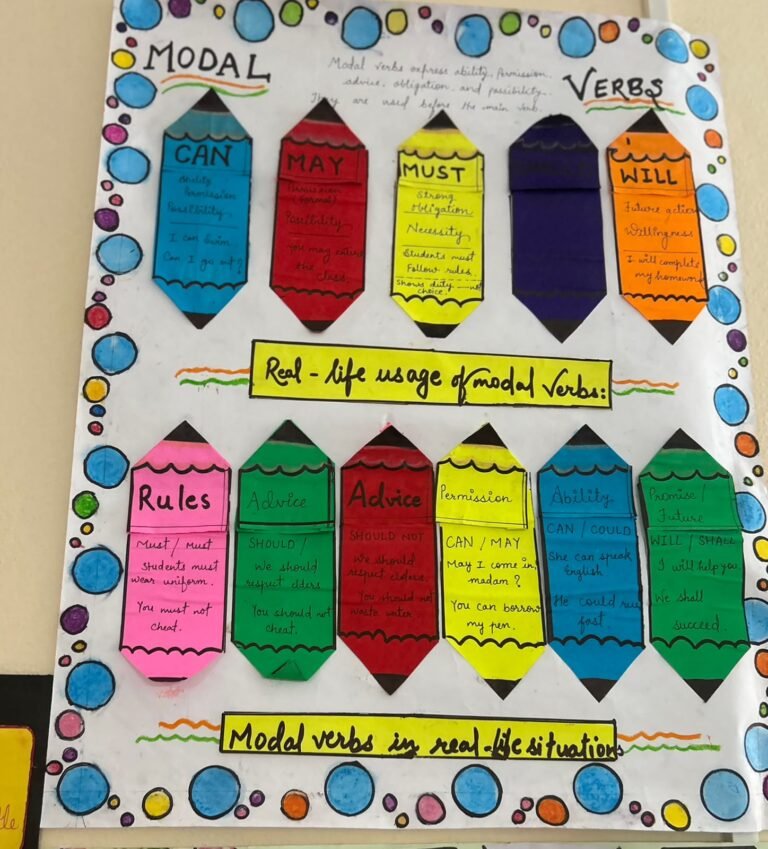 MODAL
VERBS
Modal verbs express ability, Permission,
advice, obligation, and possibility.
They are used before the main verb.
CAN
Ability
Permission
Possibility
I can swim
Can I go out?
MAY
Permission
(formal)
Possibility
You may enter
the class.
MUST
Strong
obligation
Necessity
Students must
Follow rules.
Shows duty
choice.
WILL
Future action
Willingness
I will complete
my homework
Real-life usage of modal Verbs:
Rules
Must / Must
Students must
wear uniform.
You must not
cheat.
Advice
SHOULD /
We should
respect elders
You should not
cheat.
Advice
SHOULD NOT
We should
respect elders.
You should not
waste water.
Permission
CAN / MAY
May I come in,
madam?
You can borrow
my pen.
Ability
CAN / COULD
She can speak
English.
He could run
fast.
Promise /
Future
WILL / SHALL
I will help you.
We shall
succeed.
Modal verbs in real-life situations